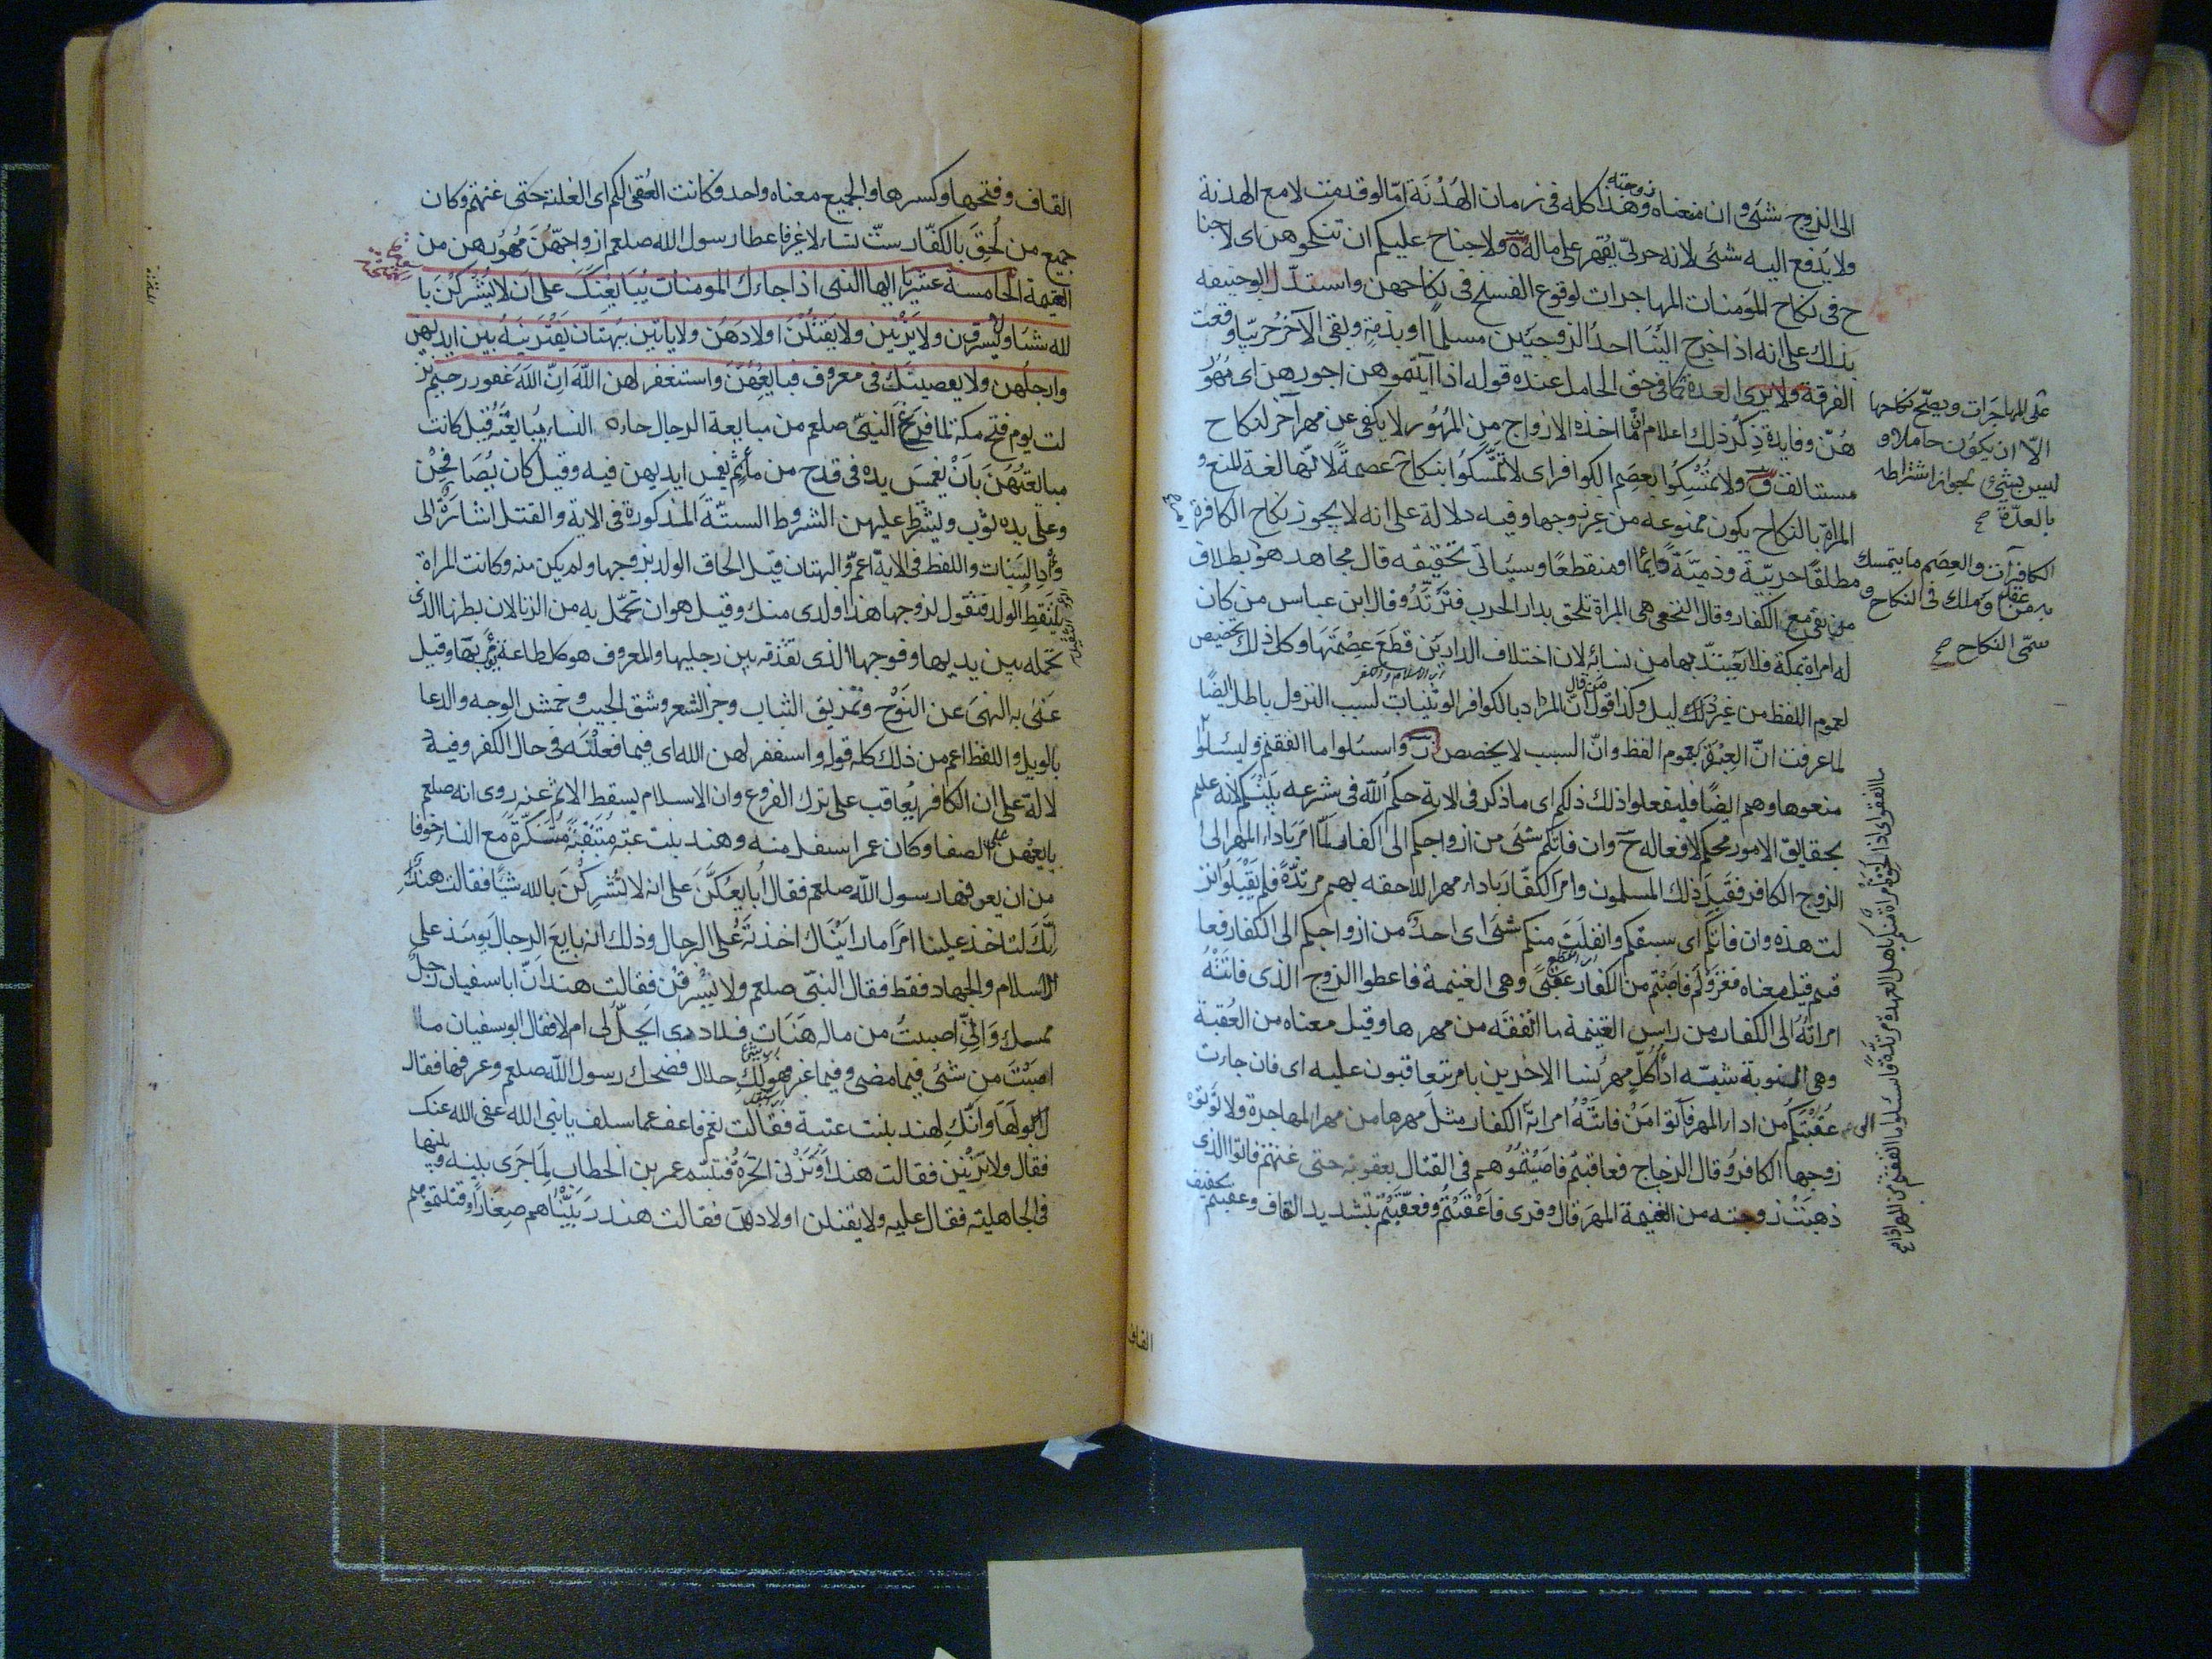 الى الزوج شئى وان منعناه زوجته وهذا كله فى زمان الهُدْنَة امّا لو قدمت لا مع الهدنة
ولا يدفع اليه شئى لانه حربىّ يُقهر على ماله ولا جناح عليكم ان تنكحوهن اى لا جنا
ح فى نكاح المومنات المهاجرات لوقوع الفسخ فى نكاحهن واستدلّ ابوحنيفه
بذلك على انه اذا خرج الينا احدُ الزوجيَن مسلماً او بذمة وبقى الآخر حربيّا وقعت
الفرقة ولا يرى العدة كما فى حق الحامل عنده قوله اذا آتيتموهن اجورهن اى مُهُوُر
هُنّ وفايدة ذِكُر ذلك اعلام انّ ما اخذه الازواج من المُهُور لا يكفى عن مهر آخر لنكاح
مستانف ولا تُمْسِكُوا بِعِصَم الكوافر اى لا تمَسَّكُوا بنكاح عصمةً لانّها لغة المنع و
المراة بالنكاح يكون ممنوعه من غير زوجها وفيه دلالة على انه لا يجوز نكاح الكافرة
مطلقًا حربيّة وذميّة دائما او منقطعًا وسياتى تحقيقه قال مجاهد هو بطلاق
من بقى مع الكفار وقال النخعى هى المراة تلحق بدار الحرب فترتدُّ وقال ابن عباس من كان
له امراة بمكة فلا يَعْتدّ بها من نسائه لان اختلاف الدارين قطَعَ عِصْمَتَها وكل ذلك تخصيص
اى الاسلام والكفر
لعموم اللفظ من غير دليل وكذا قول من قال انّ المراد بالكوافر الوثنيات لسبب النزول باطل ايضًا
لما عرفت انّ العِبْرة بعموم الفظ وانّ السبب لا يخصص واسئلوا ما انفقتم وليسئلوا
منعوها وهم ايضًا فليفعلوا ذلك ذلكم اى ما ذكر فى الاية حكم الله فى شرعه بينكم لانه عليم
بحقايق الامور محكم لافعاله وان فاتكم شئى من ازواجكم الى الكفار لمّا امرنا باداء المهر الى
الزوج الكافر فقَبِلَ ذلك المسلمون وامر الكفّار باداء مهر اللاحقه بهم مرتدّة فلم يَقْبَلوا نز
لت هذه وان فاتكم اى سبقكم وانفلت منكم شئى اى احدٌ من ازواجكم الى الكفار فعا
قبتم قيل معناه فغَزَوْتُم فاصَبْتم من الكفار عقبىً وهى الغنيمة فاعطوا الزوج الذى فاتتْهُ
امراتُهُ الى الكفار من راس الغنيمة ما انفقَه من مهرها وقيل معناه من العُقبة
وهى النوبة شبّه اداءُ كلٍّ مهر نسا الاخرين بامر يتعاقبون عليه اى فان جاءت
عُقْبَتكُم من اداء المهر فآتوا مَنْ فاتَتْهُ امراتَه الى الكفار مثل مهرها من مهر المهاجرة ولا تُوتوُه
زوجها الكافر وقال الزجاج فعاقبتم فاصَبْتُموُهم فى القتال بعقوبة حتى غنمتم فاتوا الذى
ذهبَتْ زوجته من الغنيمة المهرَ قال وقرى فاعْقَبْتُم وفعَقَّبْتُم بتشديد القاف وعقبتم بتخفيف
على المهاجرات ويصحّ نكاحها
الاّ ان يكون حاملا و
ليس بشئ لجواز اشتراطه
بالعدّة صح
الكافرات والعِصَم ما يتمسك
به من عقد وملك فى النكاح و
سمّى النكاح صح
القاف
القاف وفتحها وكسرها والجميع معناه واحد فكانت العُقبى لكم اى الغلبة حتى غنمتم وكان
جميع من لُحِقَ بالكفّار ستّ نساء لا غير فاعطا رسول الله صلعم ازواجهُنّ مُهوُرهن من
الغنيمة الخامسة عشر يا ايها النبى اذا جاءك المومنات يُبَايِعْنَكَ على ان لا يُشْركْنَ با
لله شيئا ولا يسرقن ولا يزْنين ولا يَقتُلْنَ اولادهُنّ ولا ياتين ببُهتان يَفْتَريَنهُ بين ايديهن
وارجلُهن ولا يعصينك فى معروف فبايِعْهُنّ واستغفر لهن اللهَ انّ اللهَ غفور رحيم نز
لت يوم فتح مكة لما فرغ النبىّ صلعم من مبايعة الرجال جاءه النساء يُبَايعْنَهُ فقيل كانت
مبايعتُهُنّ بِاَنْ يغمسَ يده فى قدح من ماء ثم يغمس ايديهن فيه وقيل كان يُصَافِحُهُنّ
وعلى يده ثوب ويشترط عليهن الشروط الستّة المذكورة فى الاية والقتل اشارةٌ الى
وأدِ البنات واللفظ فى الاية اعمّ والبهتان قيل الحاق الولد بزوجها ولم يكن منه وكانت المراة
تلتَقِط الولد فتقول لزوجها هذا ولدى منك وقيل هو ان تحمّل به من الزنا لان بطنها الذى
تحمله بين يديها وفرجها الذى تقذفه بين رجليها والمعروف هو كل طاعة يؤمَر بها وقيل
عَنَى به النهىَ عن النَوْح وتمزيق الثياب وجر الشعر وشق الجيب وخمش الوجه والدعا
بالويل واللفظ اعم من ذلك كله قوله واستغفر لهن الله اى فيما فعلْنَه فى حال الكفر وفيه
لالة على ان الكافر يُعاقب على ترك الفروع وان الاسلام يسقط الاثم عنه روى انه صلعم
بايعهُن على الصفا وكان عمر اسفل منه وهند بنت عتبة مُتنَقّبَةٌ مُتنَكّرةٌ مع النساء خوفا
من ان يعرفها رسول الله صلعم فقال اُبايعكُنَّ على ان لا تُشركْنَ بالله شيئًا فقالت هند
اِنَّكَ لتاخذ علينا امرًا ما رايْناك اخذتَه على الرجال وذلك انه بايع الرجال يومَئذ على
الاسلام والجهاد فقط فقال النبّى صلعم ولا يَسْرقْن فقالت هند انّ ابا سفيان رجلٌ
ممسك وَاِنِّى اصبتُ من ماله هَنَات فلا ادرى ايحلّ لى ام لا فقال ابوسفيان ما
اصَبْتَ من شئى فيما مضى وفيما غبر فهو لكِ حلال فضحك رسول الله صلعم وعرفها فقال
لها وانّكِ لهند بنت عتبة فقالت نعم فاعف عما سلف يا نبى الله عفى الله عنك
فقال ولا تزْنين فقالت هند اَوَتَزْنى الحُرّة فتبسّم عمر بن الخطاب لِمَا جَرَى بينه وبينها
فى الجاهليّة فقال عليه ولا يقتلن اولادهن فقالت هند ربَيّنْاهم صِغَاراً وقتلتموهم